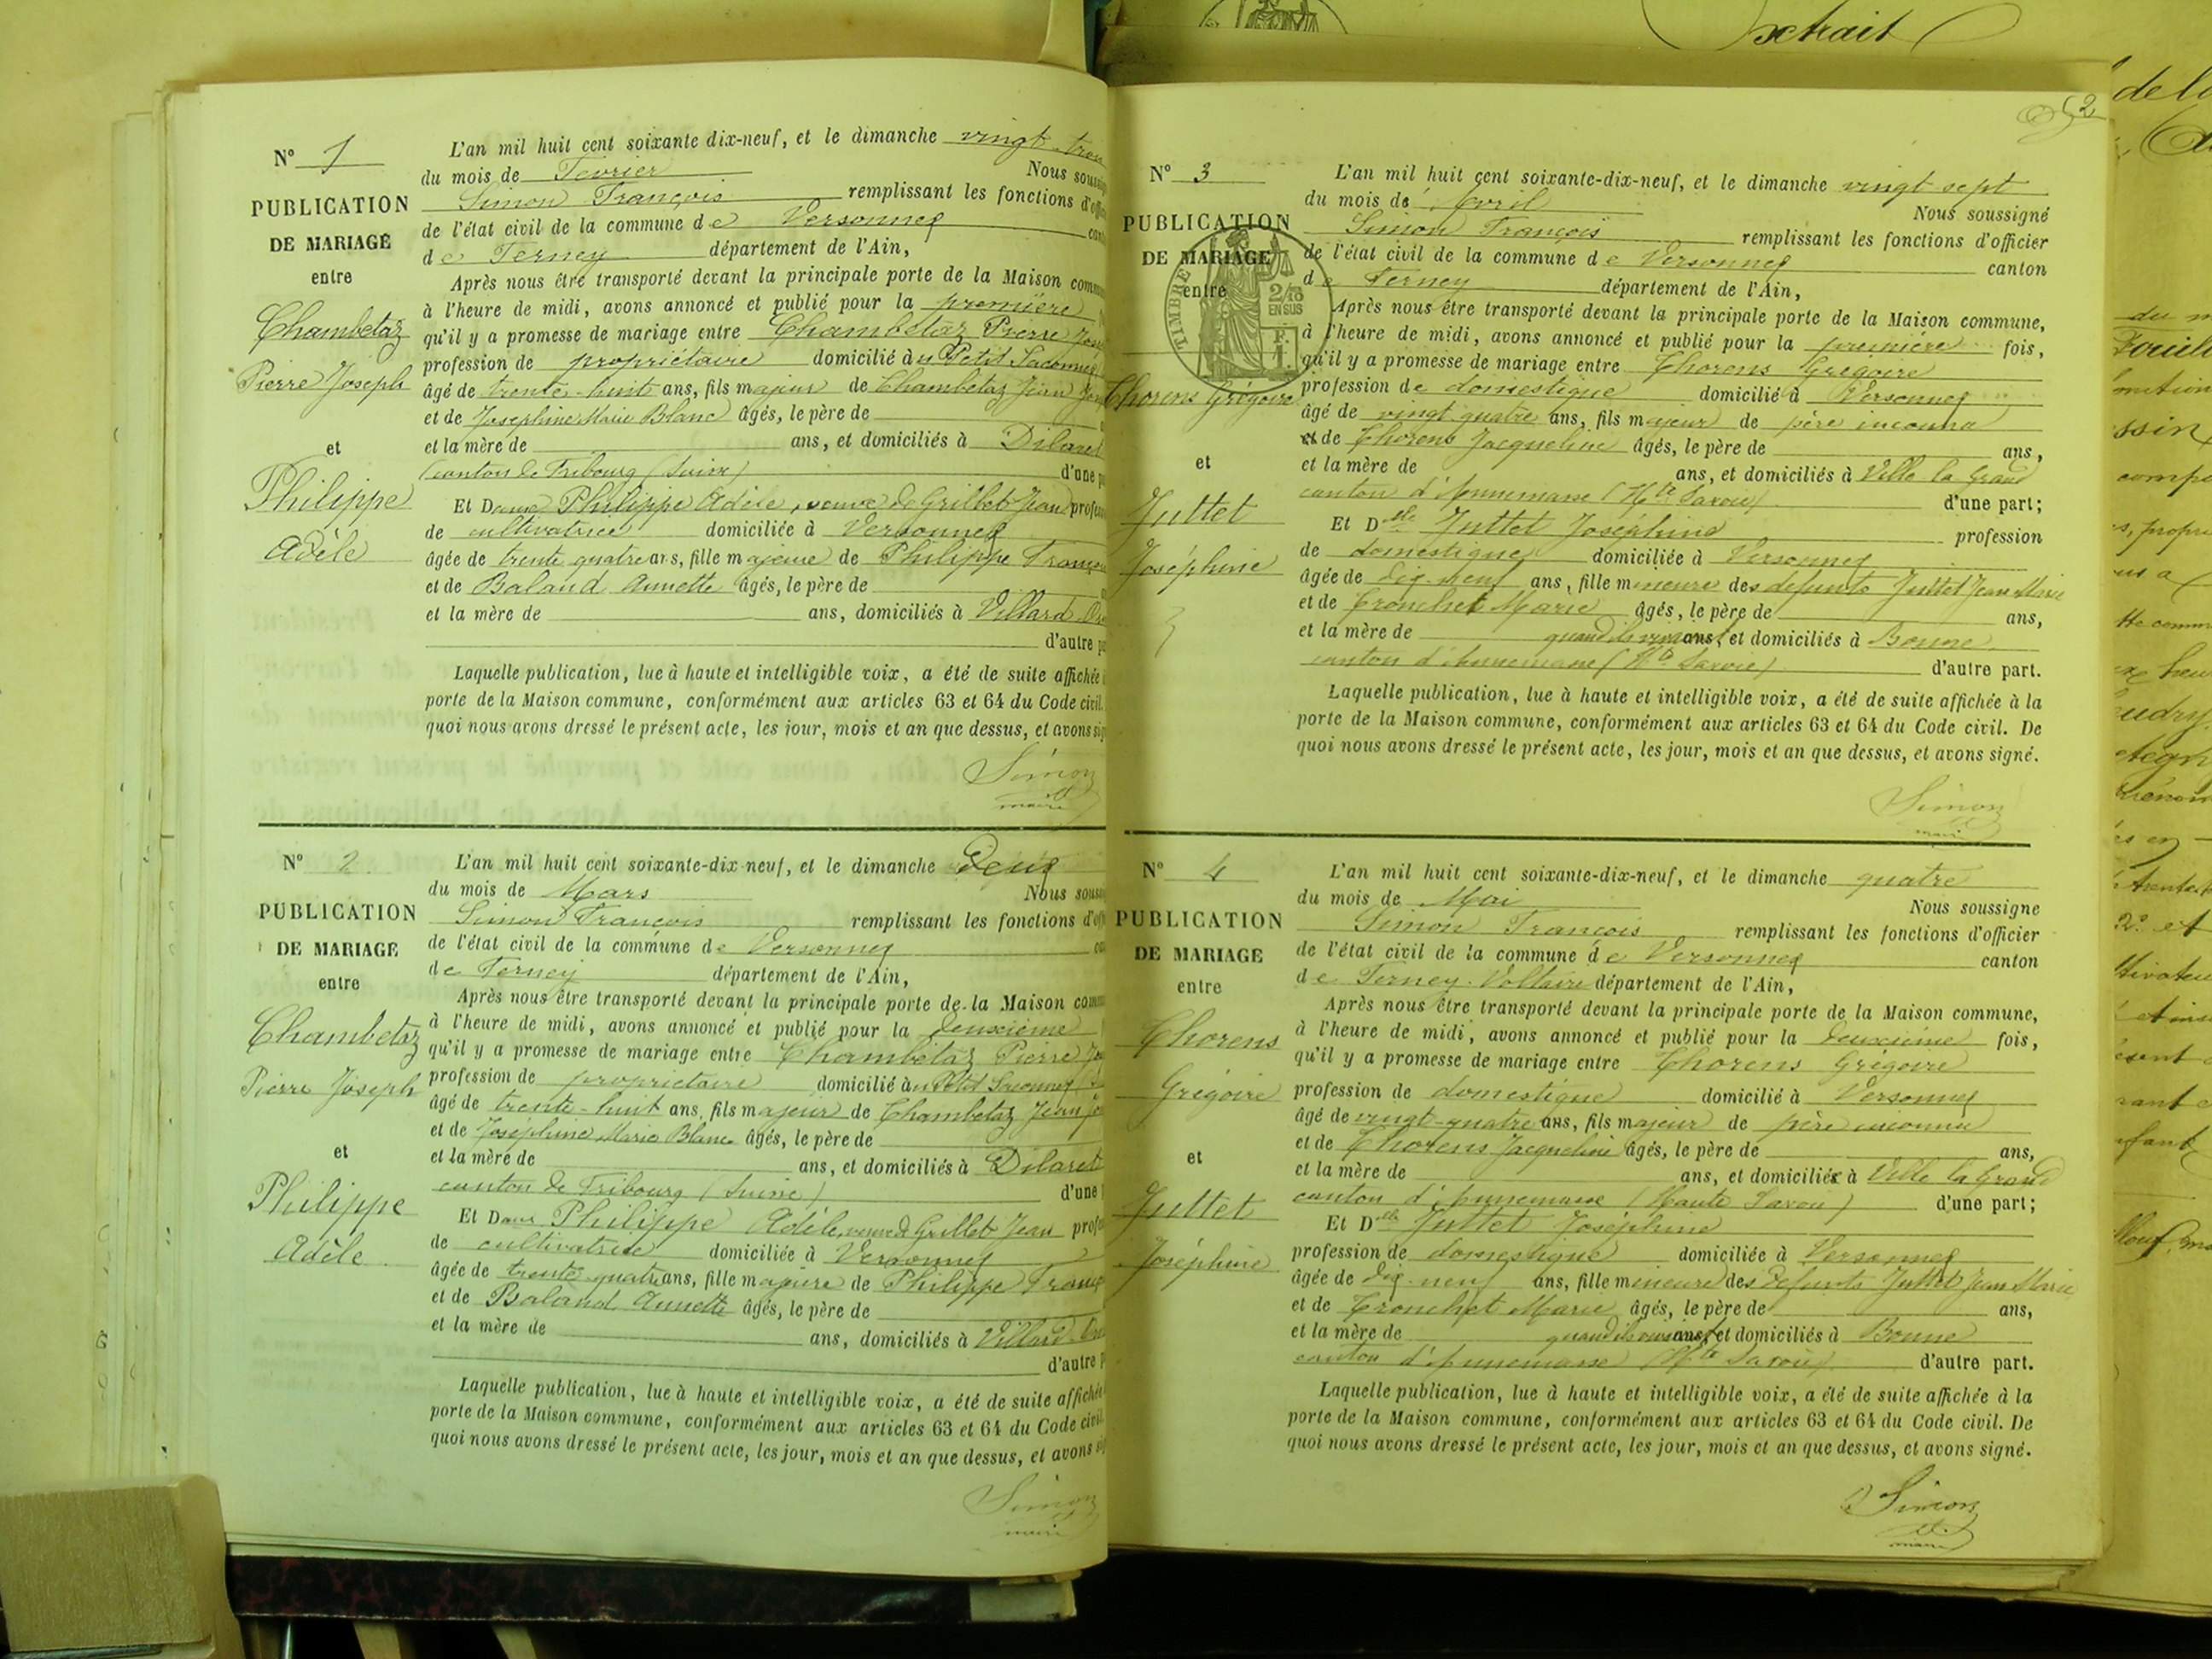 N° 1
PUBLICATION
DE MARIAGE
entre
Chambetaz
Pierre Joseph
et
Philippe
Adèle
L'an mil huit cent soixante dix-neuf, et le dimanche vingt trois
du mois de Fevrier Nous
Simon François remplissant les fonctions
de l'état civil de la commune de Versonnex
de Ferney département de l'Ain,
Après nous être transporté devant la principale porte de la Maison
à l'heure de midi, avons annoncé et publié pour la première
qu'il y a promesse de mariage entre Chambetaz Pierre
profession de propriétaire domicilié à u Petit Saconnex
âgé de trente-huit ans, fils majeur de Chambetaz Jean
et de Josephine Marie Blanc âgés, le père de
et la mère de ans, et domiciliés à
canton de Fribourg (Suisse) d'une
Et Dame Philippe Adèle, veuve de Grillet Jean
de cultivatrice domiciliée à Versonnex
âgée de trente quatre ans, fille majeure de Philippe
et de Baland Annette âgés, le père de
et la mère de ans, domiciliés à Villard
d'autre
Laquelle publication, lue à haute et intelligible voix, a été de suite affichée
porte de la Maison commune, conformément aux articles 63 et 64 du Code civil.
quoi nous avons dressé le présent acte, les jour, mois et an que dessus, et avons
Simon
maire
N° 2
PUBLICATION
DE MARIAGE
entre
Chambetaz
Pierre Joseph
et
Philippe
Adèle
L'an mil huit cent soixante-dix neuf, et le dimanche Deux
du mois de Mars Nous
Simon François remplissant les fonctions
de l'état civil de la commune de Versonnex
de Ferney département de l'Ain,
Après nous être transporté devant la principale porte de la Maison
à l'heure de midi, avons annoncé et publié pour la deuxième
qu'il y a promesse de mariage entre Chambetaz Pierre
profession de propriétaire domicilié à u Petit Saconnex
âgé de trente-huit ans, fils majeur de Chambetaz Jean
et de Josephine Marie Blanc âgés, le père de
et la mère de ans, et domiciliés à
canton de Fribourg (Suisse) d'une
Et Dame Philippe Adèle, veuve de Grillet Jean
de cultivatrice domiciliée à Versonnex
âgée de trente quatre ans, fille majeure de Philippe
et de Baland Annette âgés, le père de
et la mère de ans, domiciliés à Villard
d'autre
Laquelle publication, lue à haute et intelligible voix, a été de suite affichée
porte de la Maison commune, conformément aux articles 63 et 64 du Code civil.
quoi nous avons dressé le présent acte, les jour, mois et an que dessus, et avons
Simon
maire
N° 3
PUBLICATION
DE MARIAGE
entre
TIMBRE
2/10
EN SUS
F.
1
Thorens Grégoire
et
Juttet
Joséphine
L'an mil huit cent soixante-dix-neuf, et le dimanche vingt sept
du mois de Avril Nous soussigné
Simon François remplissant les fonctions d'officier
de l'état civil de la commune de Versonnex canton
de Ferney département de l'Ain,
Après nous être transporté devant la principale porte de la Maison commune,
à l'heure de midi, avons annoncé et publié pour la première fois,
qu'il y a promesse de mariage entre Thorens Grégoire
profession de domestique domicilié à Versonnex
âgé de vingt quatre ans, fils majeur de père inconnu
et de Thorens Jacqueline âgés, le père de ans,
et la mère de ans, et domiciliés à Ville la Grand
canton d'Annemasse (Hte Savoie) d'une part;
Et Dlle Juttet Joséphine profession
de domestique domiciliée à Versonnex
âgée de dix-neuf ans, fille mineure des defunts Juttet Jean Marie
et de Tronchet Marie âgés, le père de ans,
et la mère de quand ils vivaient ans, et domiciliés à Bonne
canton d'Annemasse (Hte Savoie) d'autre part.
Laquelle publication, lue à haute et intelligible voix, a été de suite affichée à la
porte de la Maison commune, conformément aux articles 63 et 64 du Code civil. De
quoi nous avons dressé le présent acte, les jour, mois et an que dessus, et avons signé.
Simon
maire
N° 4
PUBLICATION
DE MARIAGE
entre
Thorens
Grégoire
et
Juttet
Joséphine
L'an mil huit cent soixante-dix-neuf, et le dimanche quatre
du mois de Mai Nous soussigne
Simon François remplissant les fonctions d'officier
de l'état civil de la commune de Versonnex canton
de Ferney-Voltaire département de l'Ain,
Après nous être transporté devant la principale porte de la Maison commune,
à l'heure de midi, avons annoncé et publié pour la deuxième fois,
qu'il y a promesse de mariage entre Thorens Grégoire
profession de domestique domicilié à Versonnex
âgé de vingt-quatre ans, fils majeur de père inconnu
et de Thorens Jacqueline âgés, le père de ans,
et la mère de ans, et domiciliés à Ville la Grand
canton d'Annemasse (Haute Savoie) d'une part;
Et Dlle Juttet Joséphine
profession de domestique domiciliée à Versonnex
âgée de dix-neuf ans, fille mineure des defunts Juttet Jean Marie
et de Tronchet Marie âgés, le père de ans,
et la mère de quand ils vivaient ans, et domiciliés à Bonne
canton d'Annemasse (Hte Savoie) d'autre part.
Laquelle publication, lue à haute et intelligible voix, a été de suite affichée à la
porte de la Maison commune, conformément aux articles 63 et 64 du Code civil. De
quoi nous avons dressé le présent acte, les jour, mois et an que dessus, et avons signé.
Simon
maire